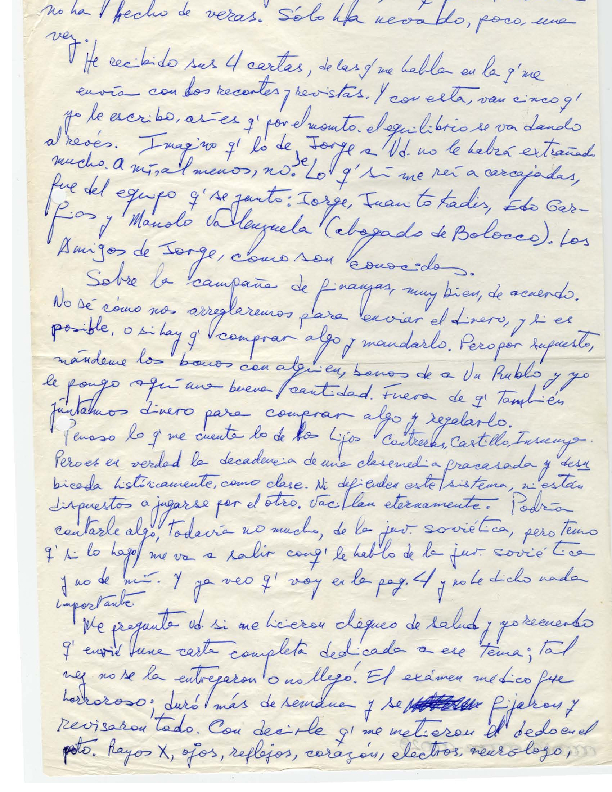 no ha hecho de veras. Sólo ha nevado, poco, una
vez.
He recibido sus 4 cartas, de las q' me habla en la q' me
envía con los recortes y revistas. Y con esta, van cinco q'
yo le escribo, así es q' por el momto. el equilibrio se va dando
al revés. Imagino q' lo de Jorge a Ud. no le habrá extrañado
mucho. A mí, al menos, no. Lo q' sí me reí a carcajadas,
fue del equipo q' se junto: Jorge, Juanto Kadis, Edo Gar-
fias y Manolo Valenzuela (abogado de Bolocco). Los
Amigos de Jorge, como son conocidos.
Sobre la campaña de finanzas, muy bien, de acuerdo.
No sé cómo nos arreglaremos para enviar el dinero, y si es
posible, o si hay q' comprar algo y mandarlo. Pero por supuesto,
mándeme los bonos con alguien, bonos de a Un Rublo y yo
le pongo aquí una buena cantidad. Fuera de q' también
juntamos dinero para comprar algo y regalarlo.
Penoso lo q' me cuenta lo de los hijos Contreras, Castillo,
Pero es en verdad la decadencia de una clase media fracasada y
bicada históricamente, como clase. Ni defienden este sistema, ni están
dispuestos a jugarse por el otro. Vacilan eternamente. Podría
contarle algo, todavía no mucho, de la juv. soviética, pero temo
q' si lo hago, me va a salir conq' le hablo de la juv. soviética
y no de mí. Y ya veo q' voy en la pag. 4 y no he dicho nada
importante.
Me pregunta Ud. si me hicieron chequeo de salud y yo recuerdo
q' envié una carta completa dedicada a ese tema; tal
vez no se la entregaron o no llegó. El exámen médico fue
horroroso; duró más de semana y se fijaron y
revisaron todo. Con decirle q' me metieron el dedo en el
poto. Rayos X, ojos, reflejos, corazón, electros. neurólogo,